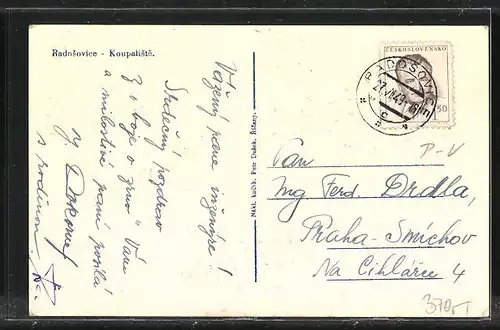 Radošovice - Koupaliště.
Vážený pane inženýre!
Srdečný pozdrav
Z "boje o zrno" Vám
a milostivé paní posílá
s rodinou
Nákl. knihk. Petr Dušek, Říčany.
ČESKOSLOVENSKO
RADOŠOVICE
27.VII.49
c
50
P-V
Pan
Ing Ferd. Drdla,
Praha-Smíchov
Na Cihlářce 4
370,-